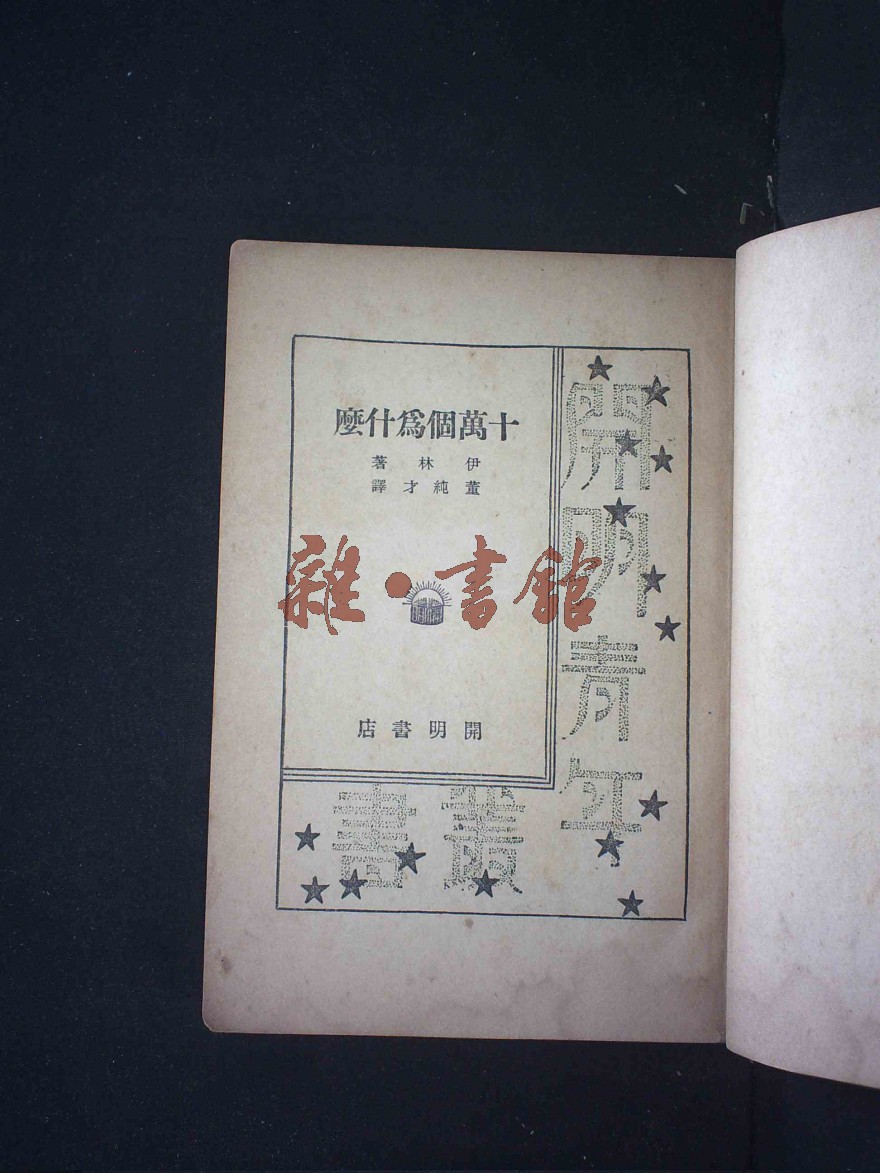 十萬個爲什麽
伊林著
董純才譯
雜·書館
開明書店
開明青年
叢書